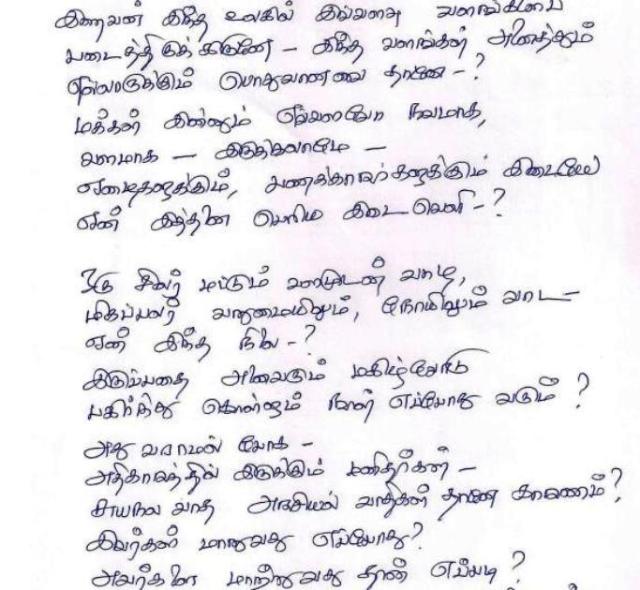 இறைவன் இந்த உலகில் இவ்வளவு வளங்களைப்
படைத்திருக்கிறானே – இந்த வளங்கள் அனைத்தும்
எல்லாருக்கும் பொதுவானவை தானே – ?
மக்கள் இன்னும் எவ்வளவோ நலமாக,
வளமாக – இருக்கலாமே –
ஏழைகளுக்கும், பணக்காரர்களுக்கும் இடையே
ஏன் இத்தனை பெரிய இடைவெளி – ?
ஒரு சிலர் மட்டும் வளமுடன் வாழ,
மிகப்பலர் வறுமையிலும், நோயிலும் வாட –
ஏன் இந்த நிலை – ?
இருப்பதை அனைவரும் மகிழ்வோடு
பகிர்ந்து கொள்ளும் நாள் எப்போது வரும் ?
அது வராமல் போக –
அதிகாரத்தில் இருக்கும் மனிதர்கள் –
சுயநல வாத அரசியல் வாதிகள் தானே காரணம் ?
இவர்கள் மாறுவது எப்போது ?
அவர்களை மாற்றுவது தான் எப்படி ?